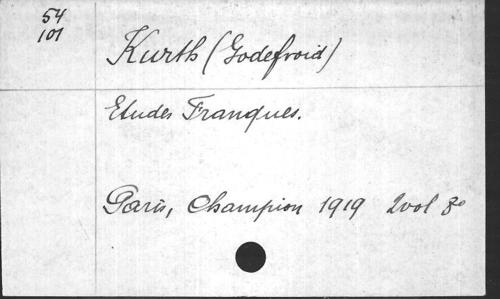 54
101
Kurth (Godefroid)
Etudes Franques.
Paris, Champion 1919 2 vol 8o